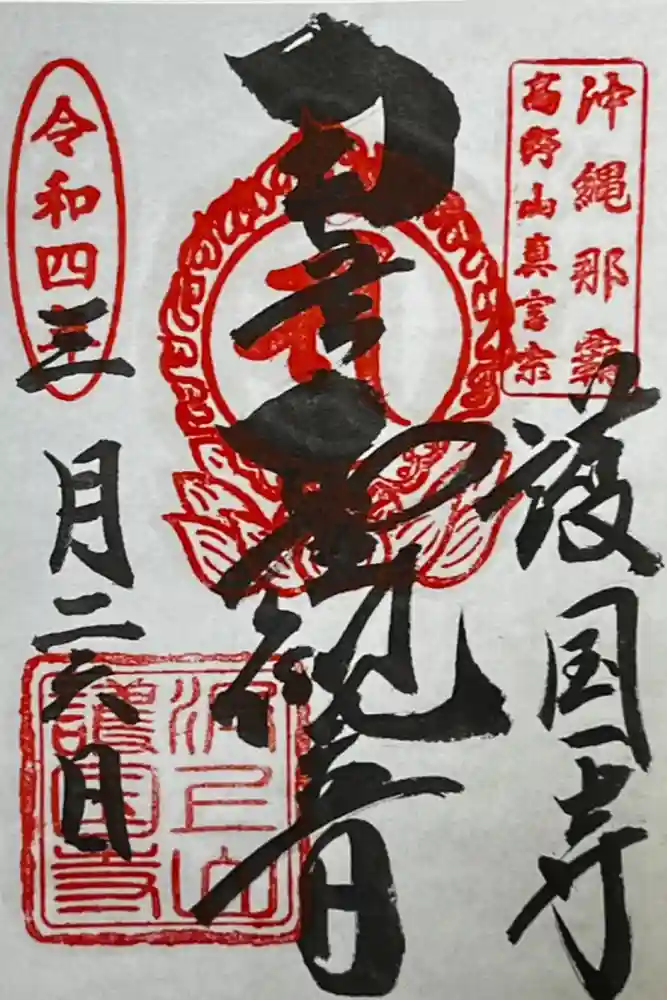 沖縄那覇
高野山真言宗
護国寺
聖観音
令和四年
三月二六日
波上山
護國寺